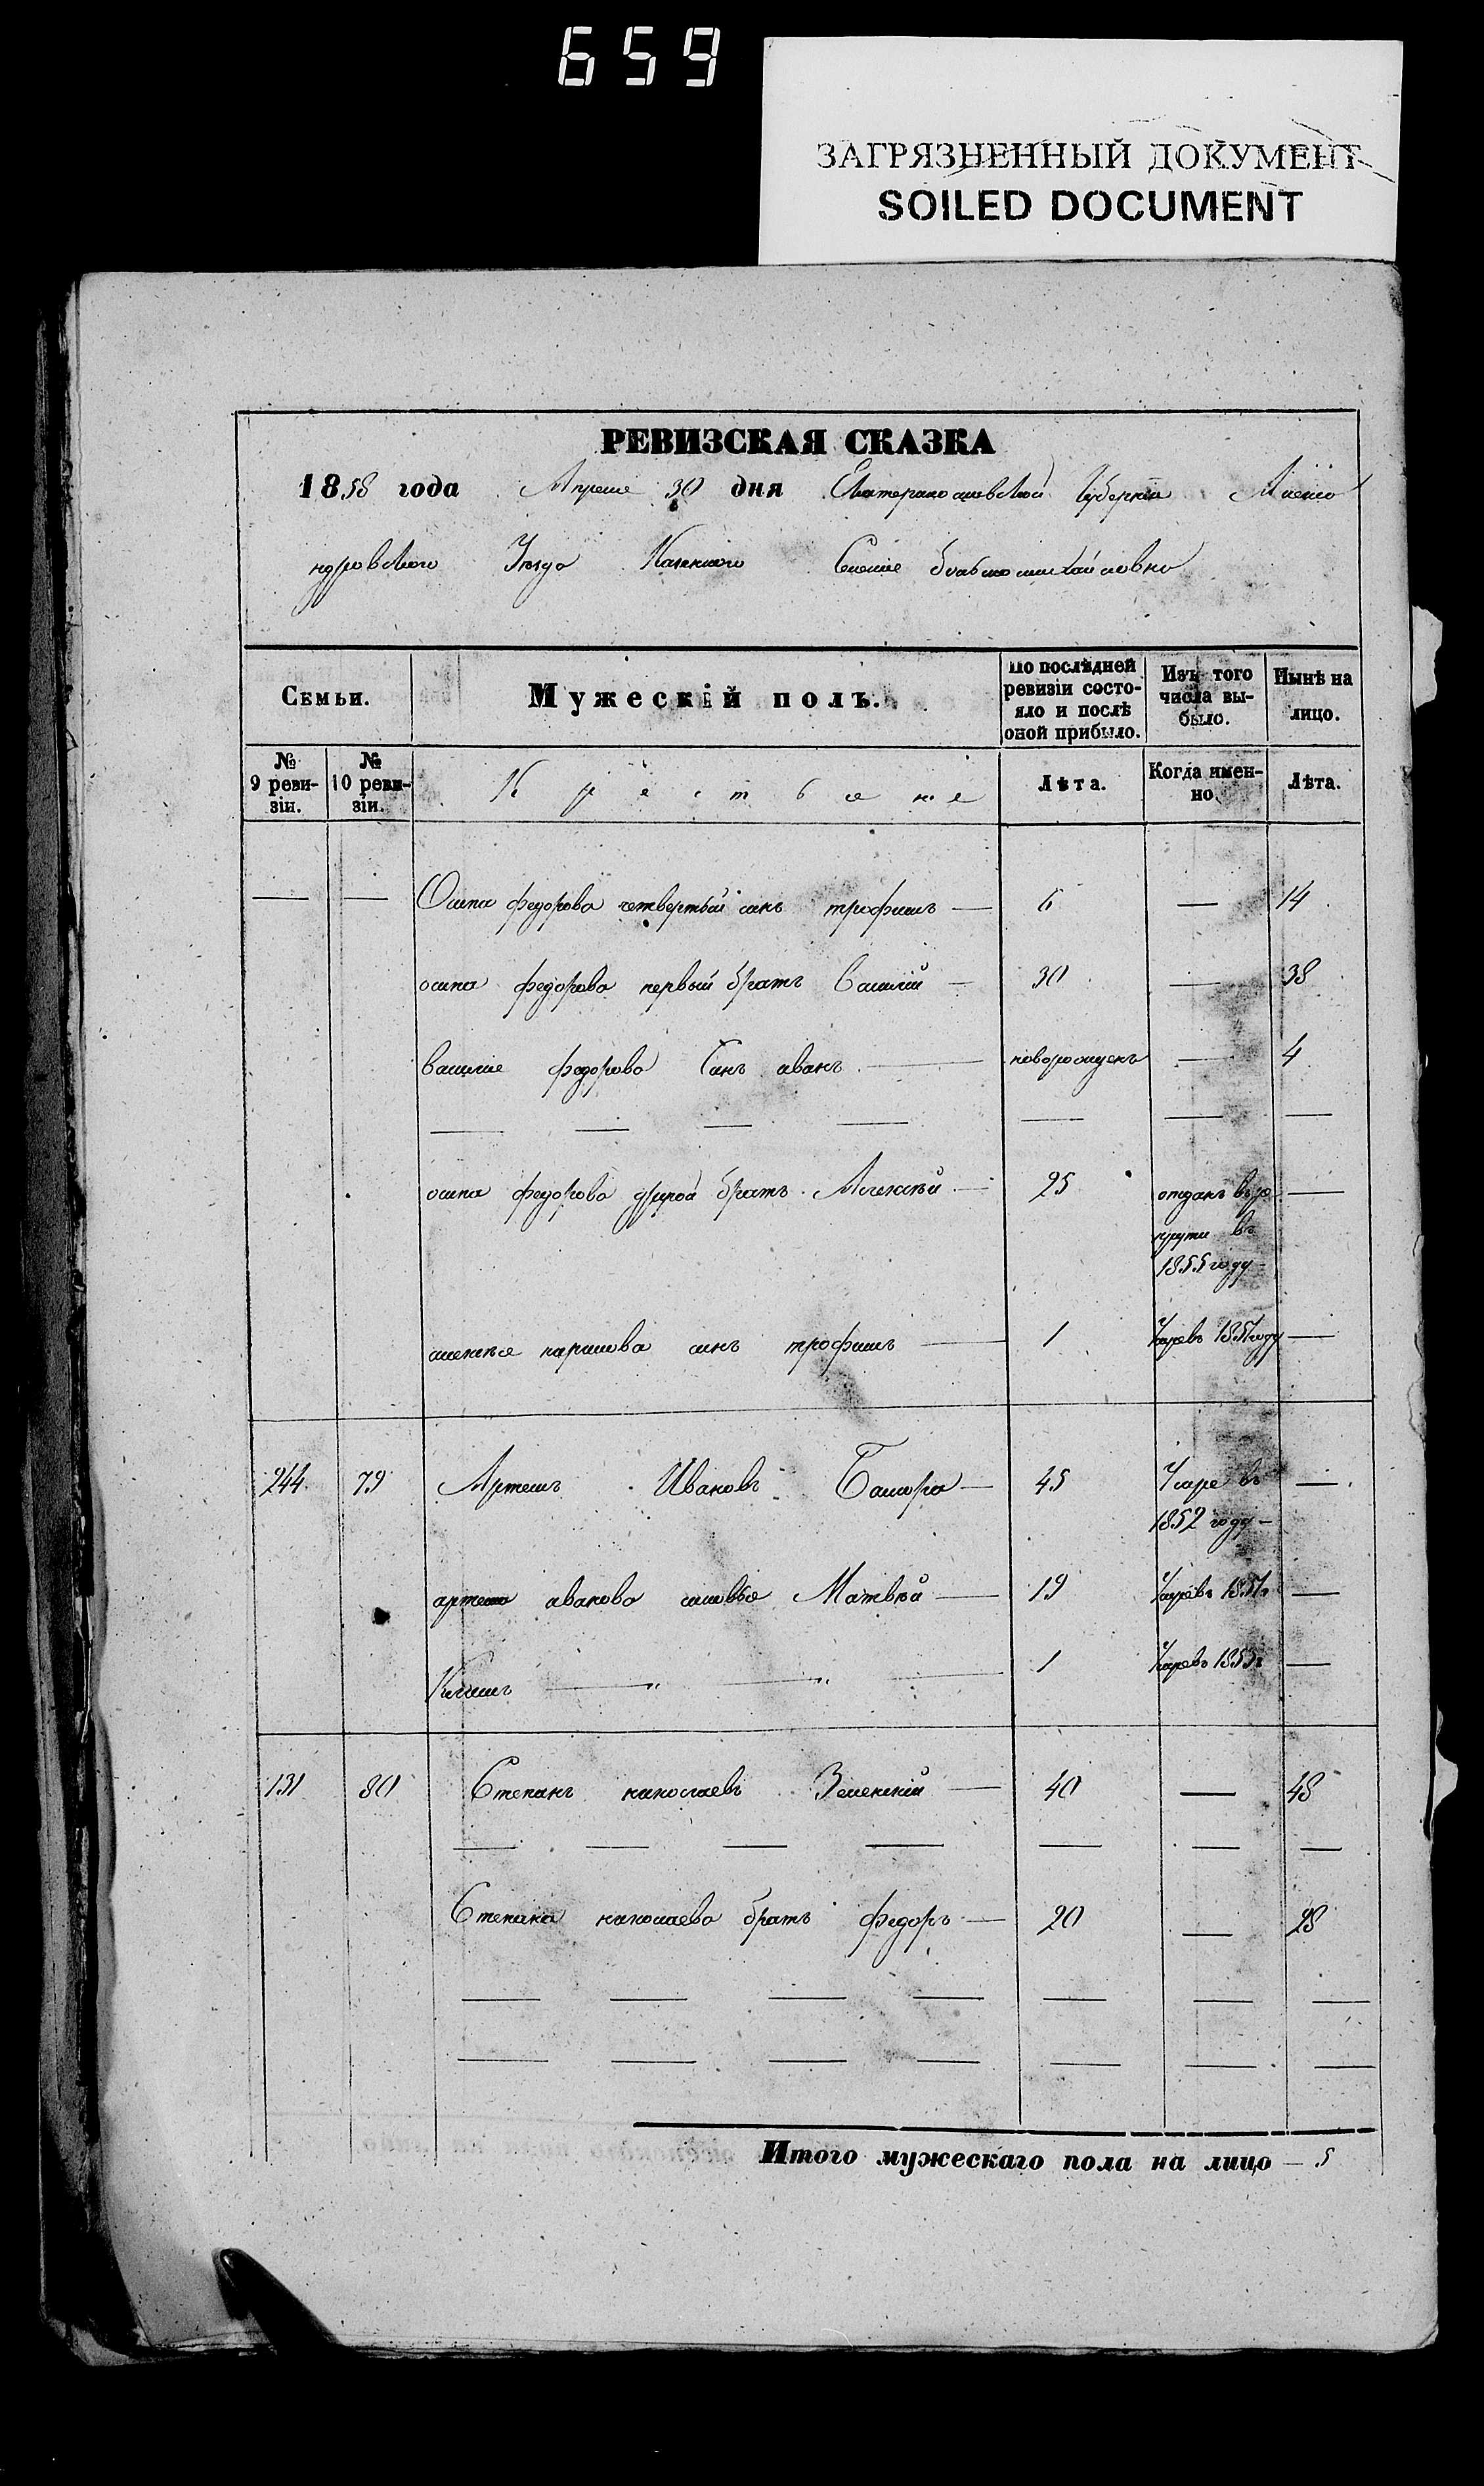 659
ЗАГРЯЗНЕННЫЙ ДОКУМЕНТ
SOILED DOCUMENT
РЕВИЗСКАЯ СКАЗКА
1858 года Апреля 30 дня Екатеринославской Губернiи Алекса
ндровского Уезда Казенного Селения
Семьи. Мужескiй полъ. По послѣдней ревизiи состояло и послѣ оной прибыло. Изъ того числа выбыло. Нынѣ на лицо.
№ 9 ревизiи. № 10 ревизiи. Крестьяне Лѣта. Когда именно. Лѣта.
— — Осипа федорова четвертый синъ трофимъ — 6 — 14
осипа федорова первый братъ Василiй — 30 — 38
василия федорова Синъ иванъ — новорожденъ — 4
осипа федорова другой братъ Алексѣй — 25 отданъ въ рекруты въ 1855 году —
синъ трофимъ — 1 Умревъ 1851 году —
244 79 Артемъ Ивановъ — 45 Умре въ 1852 году —
артема иванова сыновья Матвѣй — 19 Умревъ 1851г —
Климъ — „ — „ — 1 Умревъ 1853г —
131 80 Степанъ николаевъ Зеленскiй — 40 — 48
Степана николаева братъ федоръ — 20 — 28
Итого мужескаго пола на лицо — 5